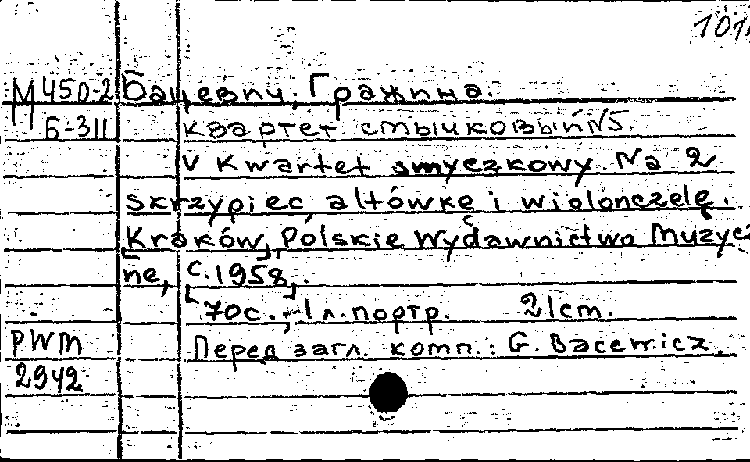 101
М 450-2 Бацевич, Гражина.
Б-311 Квартет смычковый N5.
V Kwartet smyczkowy. Na 2
skrzypiec, altówkę i wiolonczelę.
[Kraków], Polskie Wydawnictwo Muzycz
ne, [c.1958].
70с., 1 л. портр. 21cm.
PWM Перед загл. комп.: G. Bacewicz.
2942